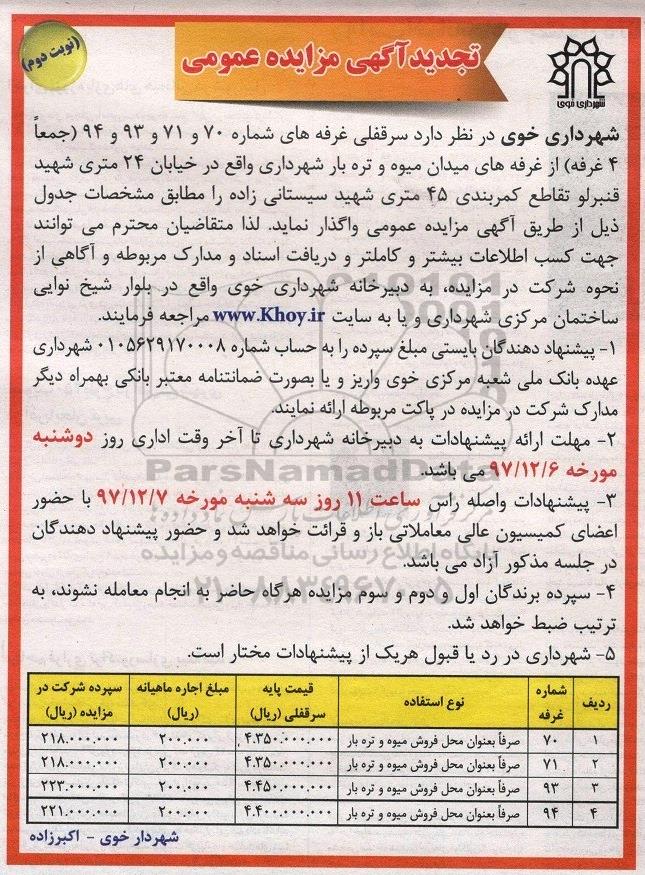 (نوبت دوم)
تجدید آگهی مزایده عمومی
شهرداری خوی
شهرداری خوی در نظر دارد سرقفلی غرفه های شماره ۷۰ و ۷۱ و ۹۳ و ۹۴ (جمعاً
۴ غرفه) از غرفه های میدان میوه و تره بار شهرداری واقع در خیابان ۲۴ متری شهید
قنبرلو تقاطع کمربندی ۴۵ متری شهید سیستانی زاده را مطابق مشخصات جدول
ذیل از طریق آگهی مزایده عمومی واگذار نماید. لذا متقاضیان محترم می توانند
جهت کسب اطلاعات بیشتر و کاملتر و دریافت اسناد و مدارک مربوطه و آگاهی از
نحوه شرکت در مزایده، به دبیرخانه شهرداری خوی واقع در بلوار شیخ نوایی
ساختمان مرکزی شهرداری و یا به سایت www.Khoy.ir مراجعه فرمایند.
۱- پیشنهاد دهندگان بایستی مبلغ سپرده را به حساب شماره ۰۱۰۵۶۲۹۱۷۰۰۰۸ شهرداری
عهده بانک ملی شعبه مرکزی خوی واریز و یا بصورت ضمانتنامه معتبر بانکی بهمراه دیگر
مدارک شرکت در مزایده در پاکت مربوطه ارائه نمایند.
۲- مهلت ارائه پیشنهادات به دبیرخانه شهرداری تا آخر وقت اداری روز دوشنبه
مورخه ۹۷/۱۲/۶ می باشد.
ParsNamadData
۳- پیشنهادات واصله راس ساعت ۱۱ روز سه شنبه مورخه ۹۷/۱۲/۷ با حضور
اعضای کمیسیون عالی معاملاتی باز و قرائت خواهد شد و حضور پیشنهاد دهندگان
در جلسه مذکور آزاد می باشد.
پایگاه اطلاع رسانی مناقصه و مزایده
۰۲۱-۸۸۳۴۹۶۷۰-۵
۴- سپرده برندگان اول و دوم و سوم مزایده هرگاه حاضر به انجام معامله نشوند، به
ترتیب ضبط خواهد شد.
۵- شهرداری در رد یا قبول هریک از پیشنهادات مختار است.
ردیف شماره غرفه نوع استفاده قیمت پایه سرقفلی (ریال) مبلغ اجاره ماهیانه (ریال) سپرده شرکت در مزایده (ریال)
۱ ۷۰ صرفاً بعنوان محل فروش میوه و تره بار ۴.۳۵۰.۰۰۰.۰۰۰ ۲۰۰.۰۰۰ ۲۱۸.۰۰۰.۰۰۰
۲ ۷۱ صرفاً بعنوان محل فروش میوه و تره بار ۴.۳۵۰.۰۰۰.۰۰۰ ۲۰۰.۰۰۰ ۲۱۸.۰۰۰.۰۰۰
۳ ۹۳ صرفاً بعنوان محل فروش میوه و تره بار ۴.۴۵۰.۰۰۰.۰۰۰ ۲۰۰.۰۰۰ ۲۲۳.۰۰۰.۰۰۰
۴ ۹۴ صرفاً بعنوان محل فروش میوه و تره بار ۴.۴۰۰.۰۰۰.۰۰۰ ۲۰۰.۰۰۰ ۲۲۱.۰۰۰.۰۰۰
شهردار خوی - اکبرزاده